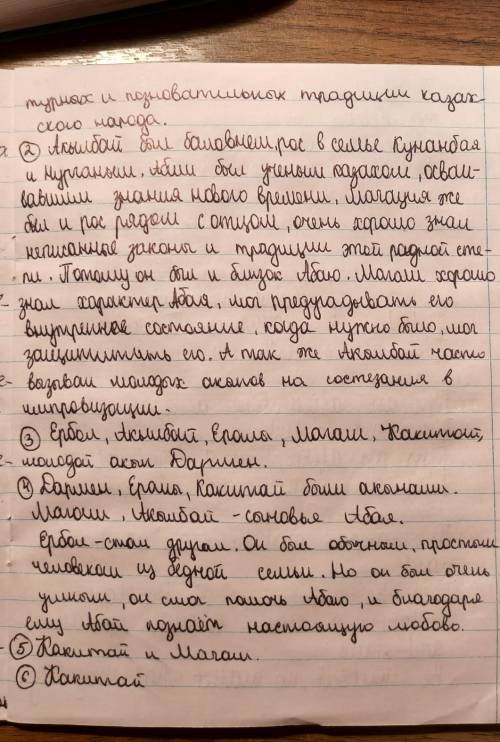 турных и позновательных традиции казах-
ского народа.
② Акылбай был баловнем, рос в семье Кунанбая
и Нурганым. Абиш был ученым казахом, осваи-
вавшим знания нового времени, Магация же
был и рос рядом с отцом, очень хорошо знал
неписанные законы и традиции этой родной сте-
пи. Потому он был и близок Абаю. Магаш хорошо
знал характер Абая, мог предугадывать его
внутренное состояние, когда нужно было, мог
его. А так же Акылбай часто
вызывал молодых акынов на состезания в
импровизации.
③ Ербол, Акылбай, Ералы, Магаш, Какитай,
молодой акын Дармен.
④ Дармен, Ералы, Какитай были акынами.
Магаш, Акылбай - сыновья Абая.
Ербол - стал другом. Он был обычным, простым
человеком из бедной семьи. Но он был очень
умным, он смог помочь Абаю, и благодаря
ему Абай познаёт настоящую любовь.
⑤ Какитай и Магаш.
⑥ Какитай